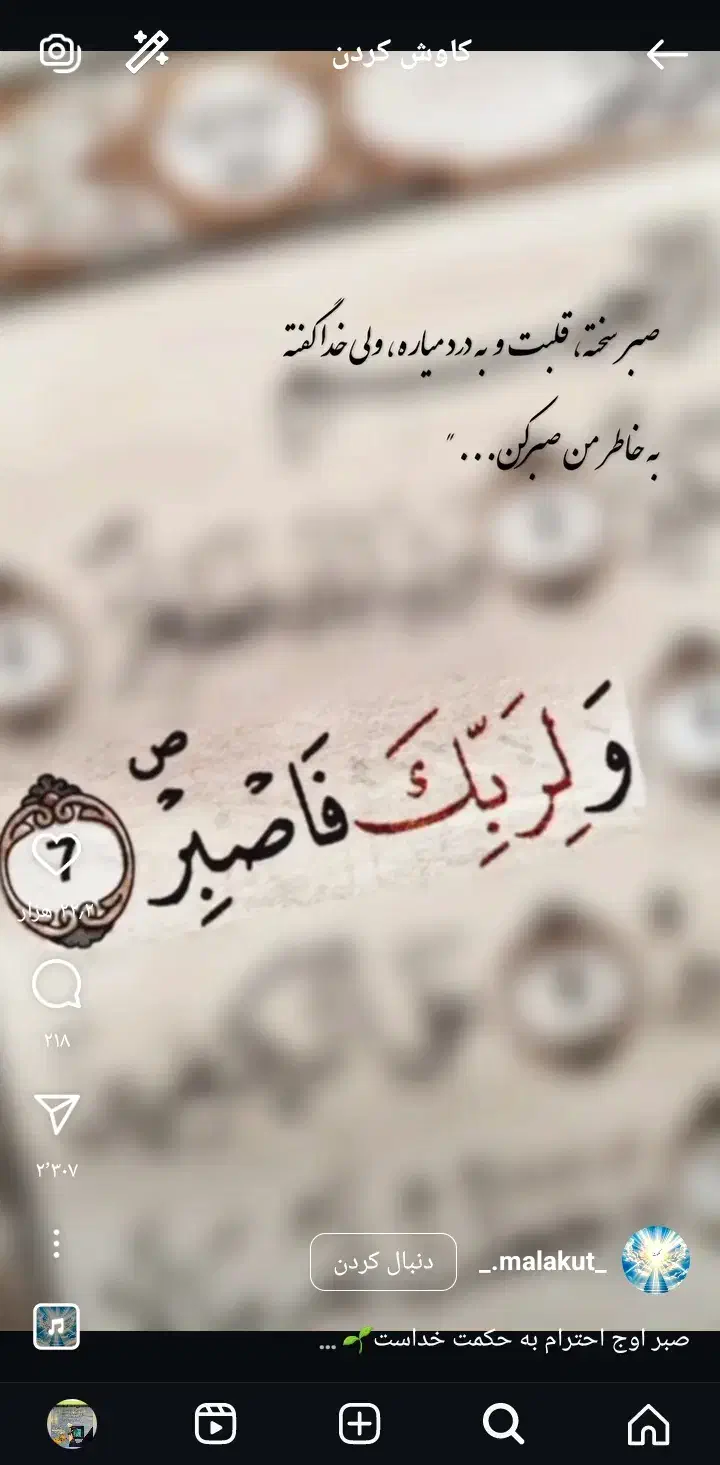 کاوش کردن
صبر سخته، قلبت و به درد میاره، ولی خدا گفته
به خاطر من صبر کن... "
وَلِرَبِّكَ فَاصْبِرْ ۷
۲۲٫۲ هزار
۲۱۸
۲٬۳۰۷
_.malakut_
دنبال کردن
صبر اوج احترام به حکمت خداست🌱 ...